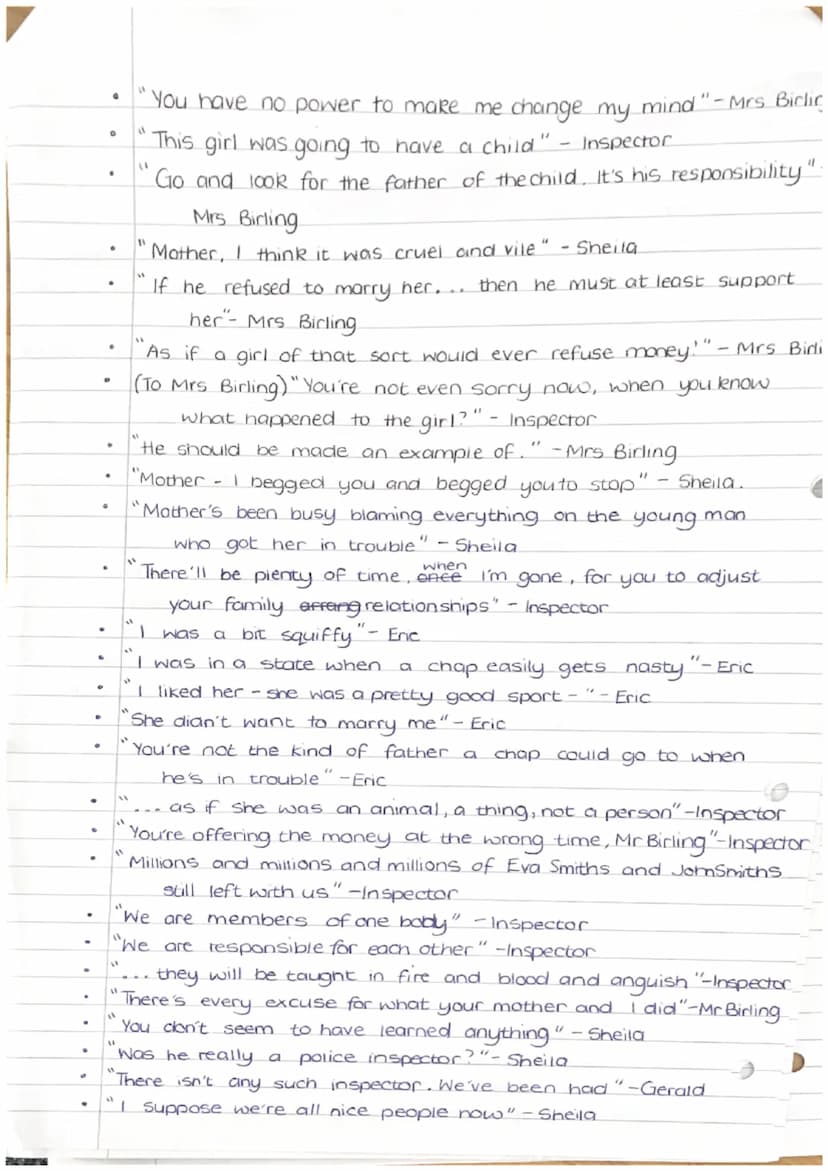 • "You have no power to make me change my mind" - Mrs Birling
• "This girl was going to have a child" - Inspector
• "Go and look for the father of the child. It's his responsibility" -
Mrs Birling
• "Mother, I think it was cruel and vile" - Sheila
• "If he refused to marry her... then he must at least support
her" - Mrs Birling
• "As if a girl of that sort would ever refuse money!" - Mrs Birli
• (To Mrs Birling) "You're not even sorry now, when you know
what happened to the girl?" - Inspector
• "He should be made an example of." - Mrs Birling
• "Mother - I begged you and begged you to stop" - Sheila.
• "Mother's been busy blaming everything on the young man
who got her in trouble" - Sheila
• "There'll be plenty of time, once when I'm gone, for you to adjust
your family arrang relationships" - Inspector
• "I was a bit squiffy" - Eric
• "I was in a state when a chap easily gets nasty" - Eric
• "I liked her - she was a pretty good sport - " - Eric
• "She didn't want to marry me" - Eric
• "You're not the kind of father a chap could go to when
he's in trouble" - Eric
• "... as if she was an animal, a thing, not a person" - Inspector
• "You're offering the money at the wrong time, Mr Birling" - Inspector
• "Millions and millions and millions of Eva Smiths and John Smiths
still left with us" - Inspector
• "We are members of one body" - Inspector
• "We are responsible for each other" - Inspector
• "... they will be taught in fire and blood and anguish" - Inspector
• "There's every excuse for what your mother and I did" - Mr Birling
• "You don't seem to have learned anything" - Sheila
• "Was he really a police inspector?" - Sheila
• "There isn't any such inspector. We've been had" - Gerald
• "I suppose we're all nice people now" - Sheila